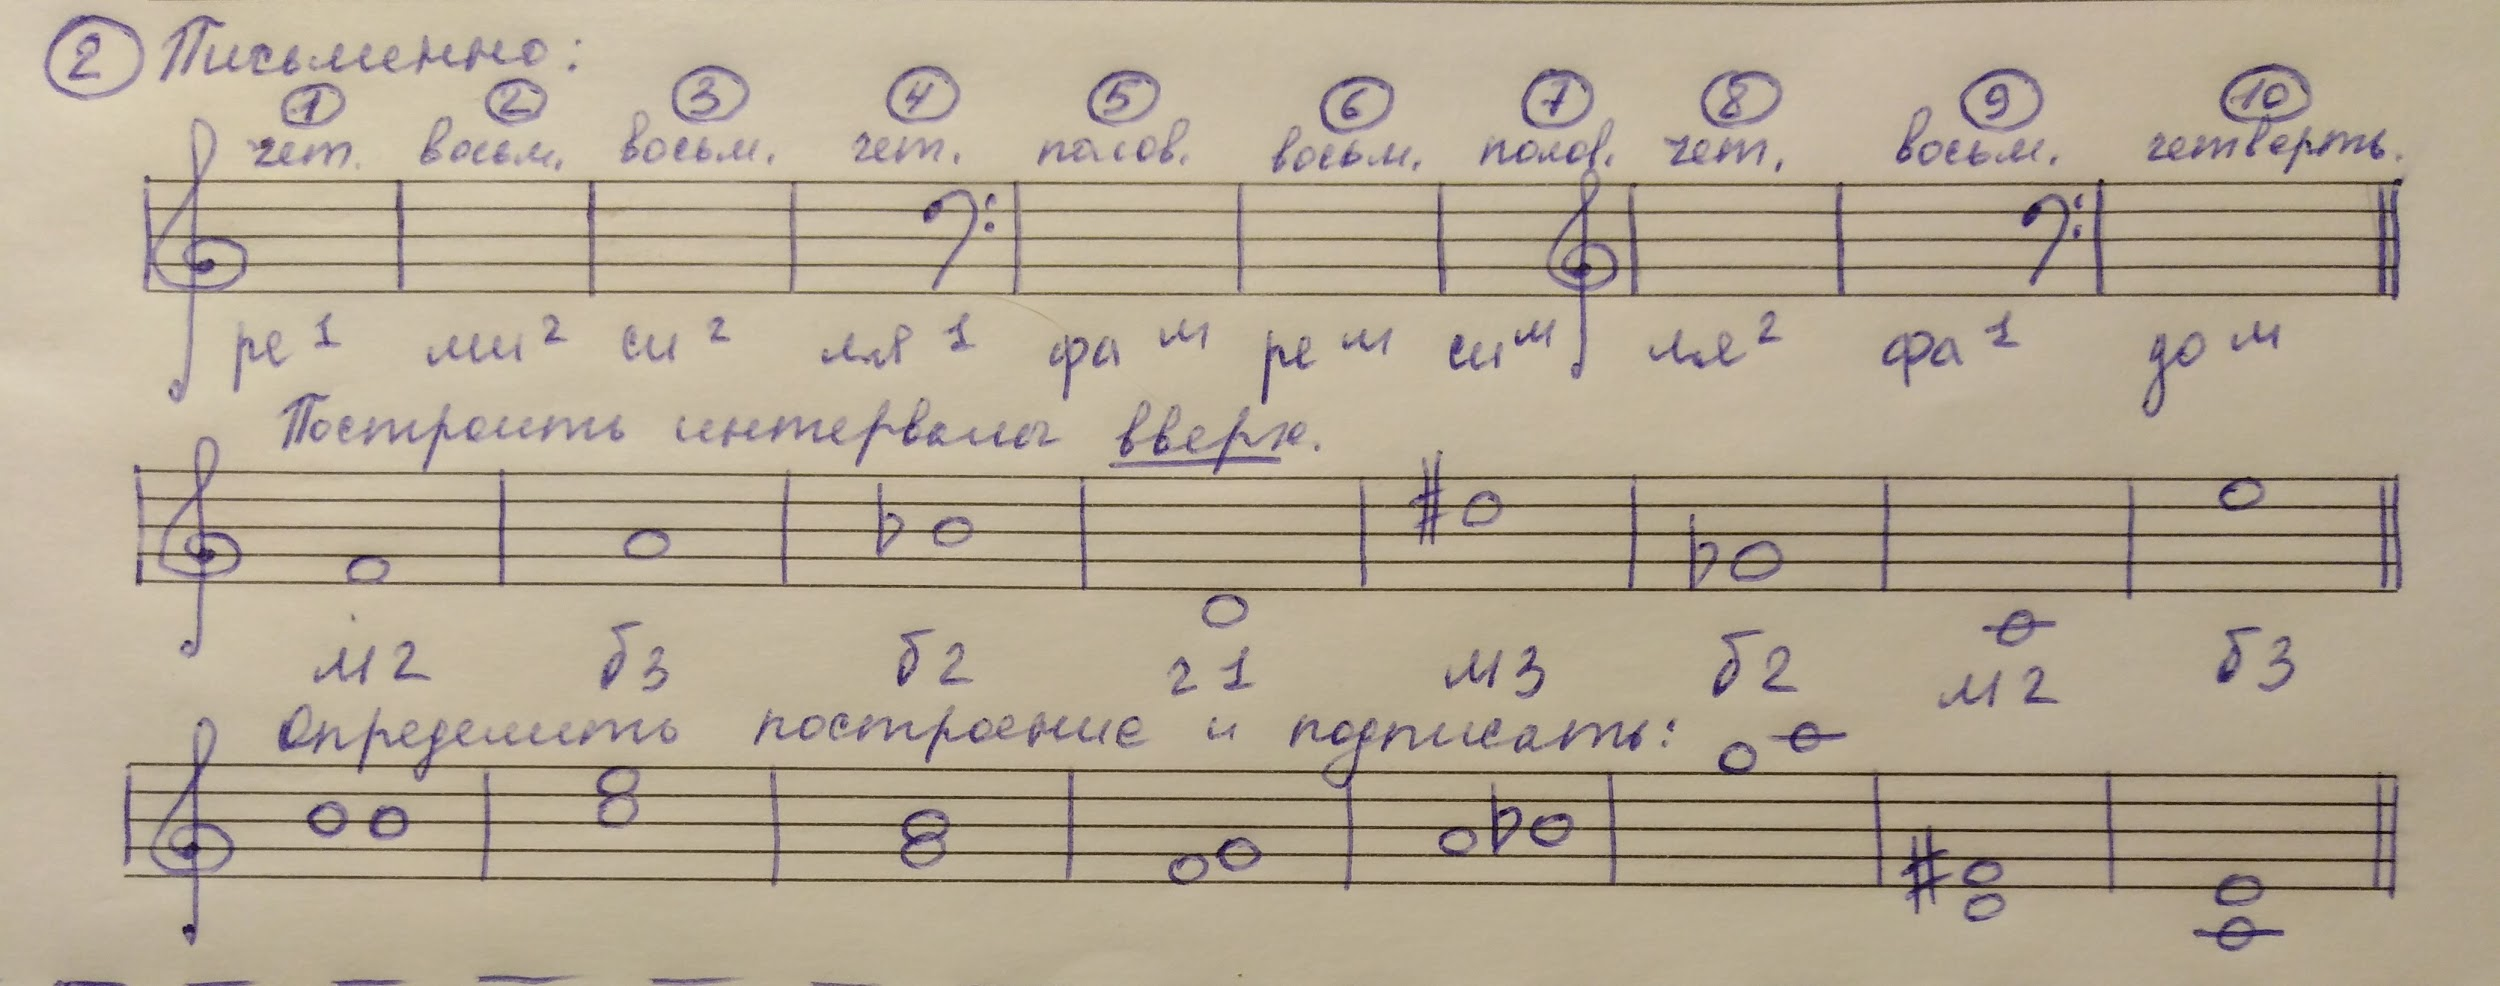 2 Письменно:
1 2 3 4 5 6 7 8 9 10
чет. восьм. восьм. чет. полов. восьм. полов. чет. восьм. четверть.
ре 1 ми 2 си 2 ля 1 фа м ре м си м ля 2 фа 1 до м
Построить интервалы вверх.
м2 б3 б2 ч1 м3 б2 м2 б3
Определить построение и подписать: